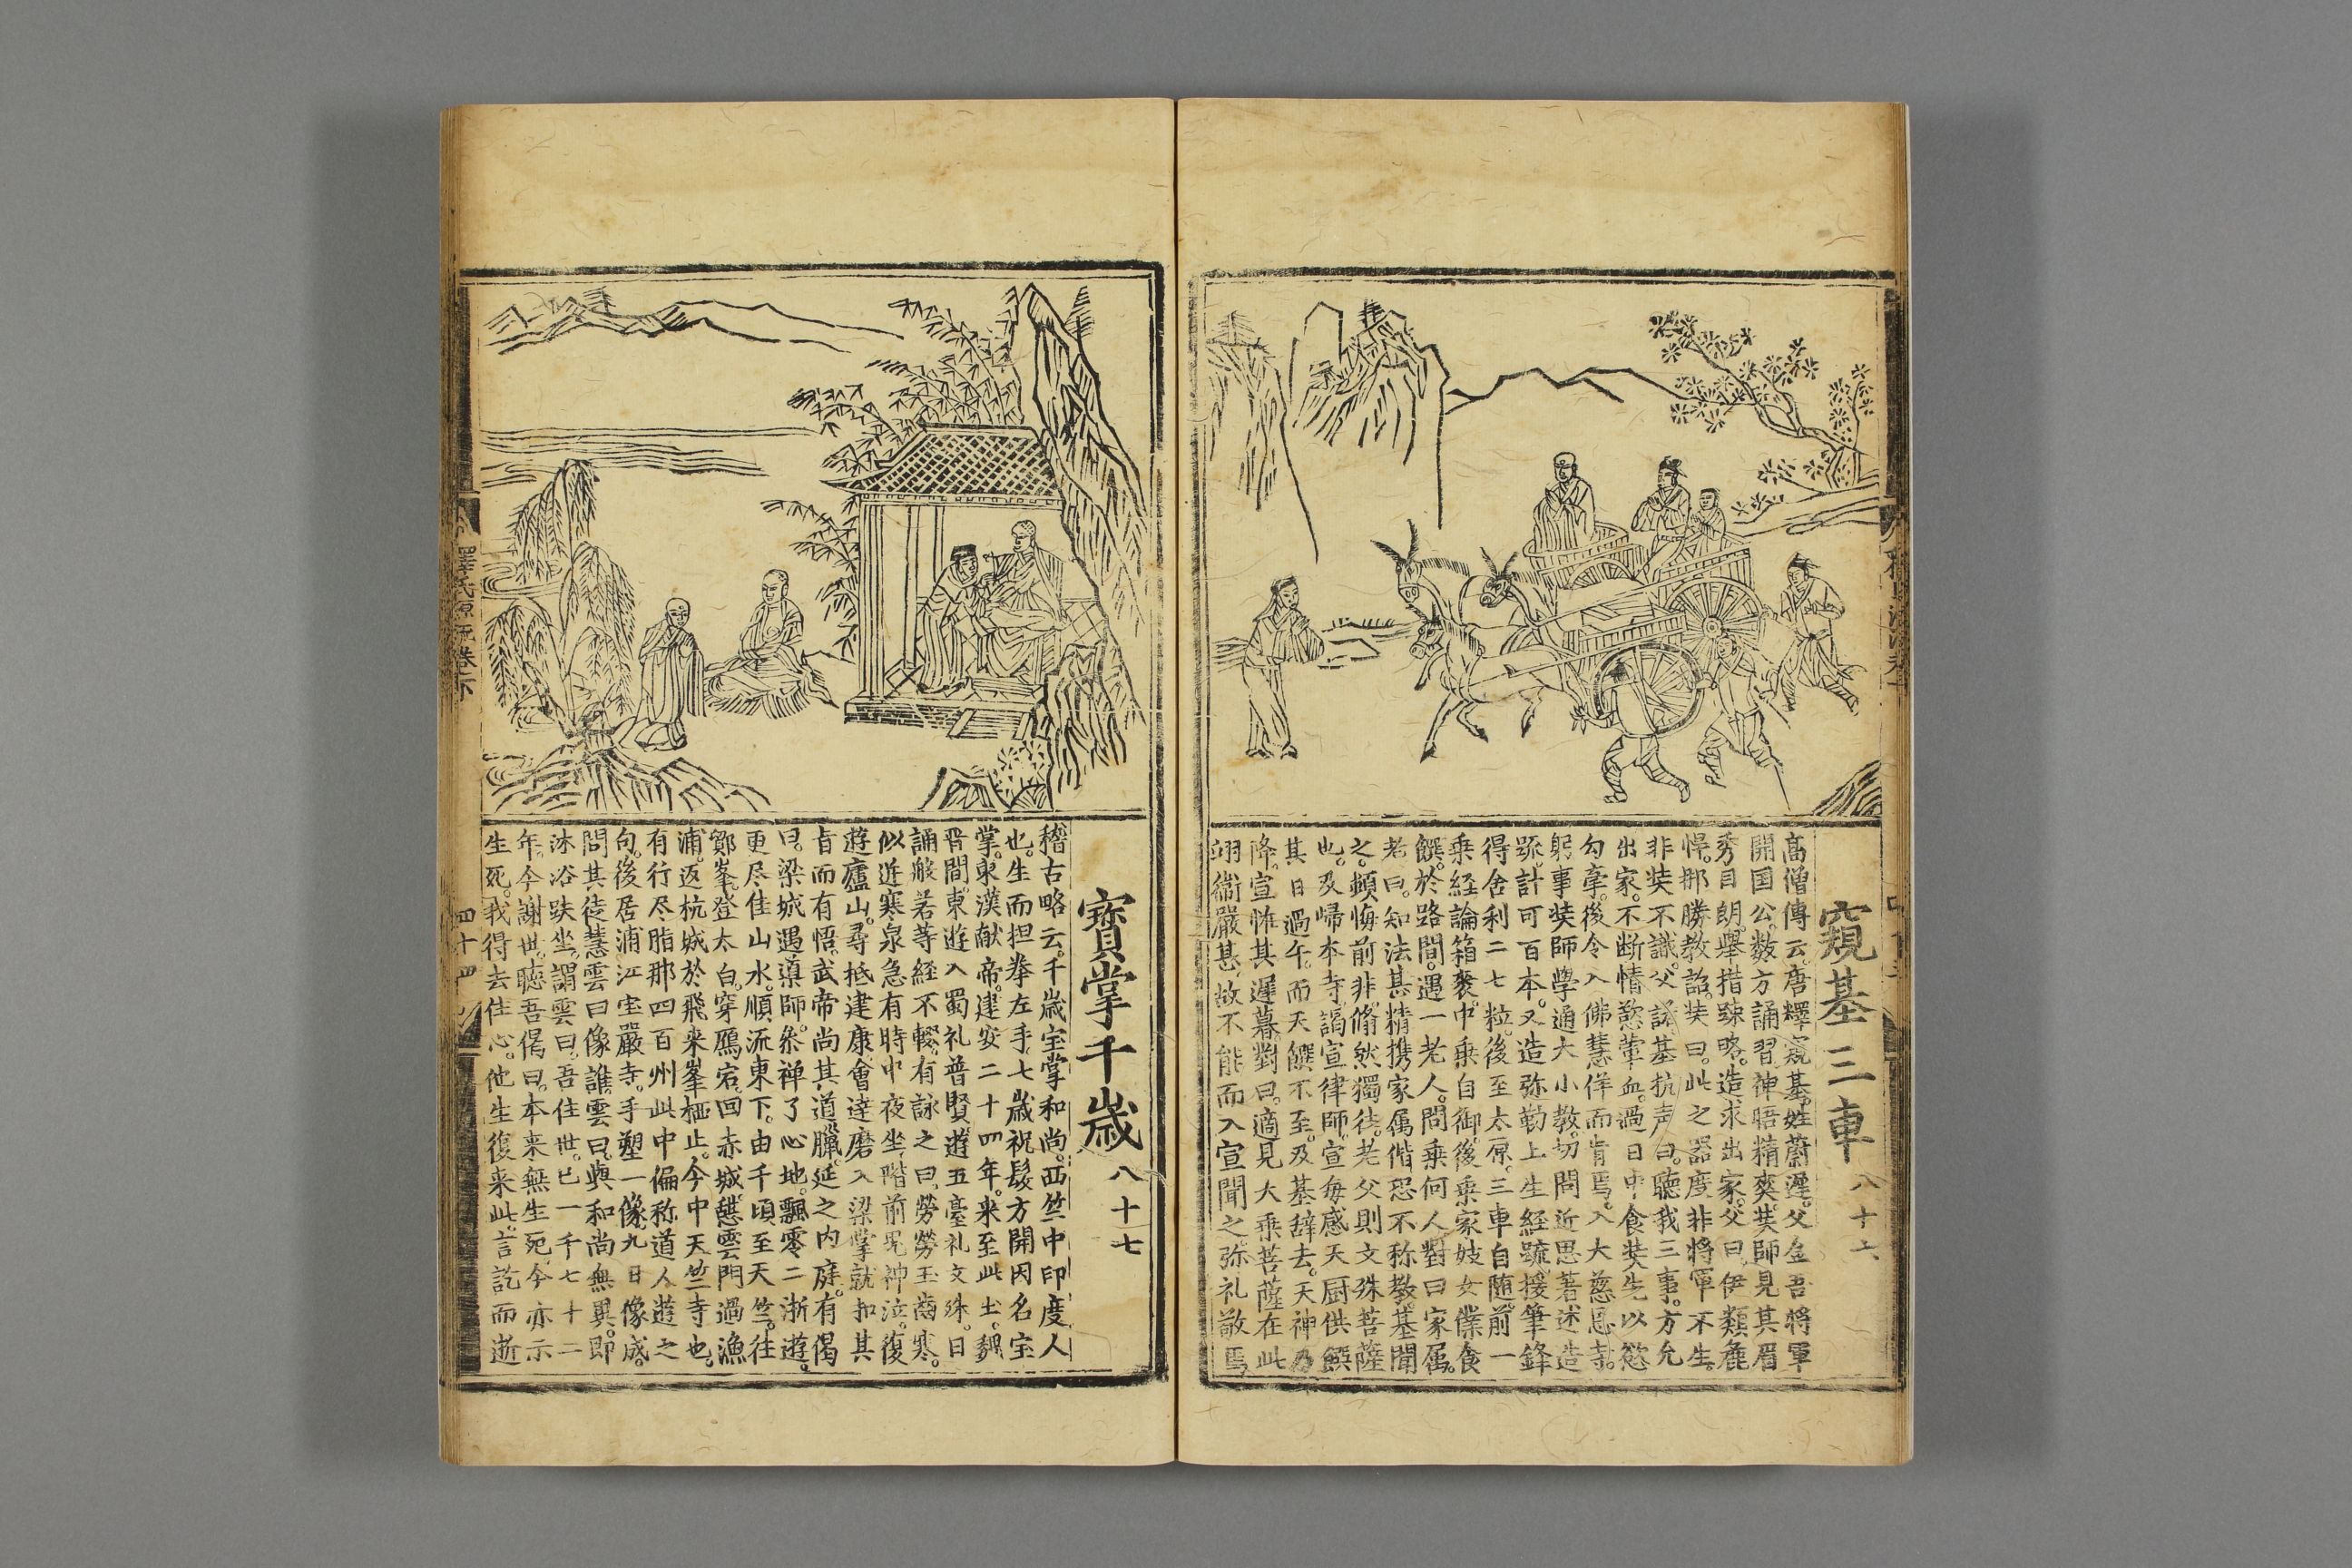 窺基三車 八十六
高僧傳云。唐釋窺基。姓蔚遲。父金吾將軍
開国公。数方誦習。神晤精爽。奘師見其眉
秀目朗。舉措踈略。造求出家。父曰。伊類麁
悍。那勝教詔。奘曰。此之器度。非將軍不生。
非奘不識。父諾。基抗声曰。聽我三事。方允
出家。不断情慾葷血。過日中食。奘先以慾
勾牽。後令入佛慧。佯而肯焉。入大慈恩寺。
躬事奘師。學通大小教。切問近思。著述造
䟽。計可百本。又造弥勒上生経䟽。援筆鋒
得舍利二七粒。後至太原。三車自随。前一
乗経論箱袠。中乗自御。後乗家妓女僕食
饌。於路間。遇一老人。問乗何人。對曰家属。
老曰。知法甚精。携家属偕。恐不称教。基聞
之。頓悔前非。翛然獨徃。老父則文殊菩薩
也。及帰本寺。謁宣律師。宣毎感天厨供饌
其日過午。而天饌不至。及基辞去。天神乃
降。宣恠其遲暮。對曰。適見大乗菩薩在此
翊衞嚴甚。故不能而入。宣聞之。弥礼敬焉
寶掌千歳 八十七
稽古略云。千歳宝掌和尚。西竺中印度人
也。生而担拳左手。七歳祝髮方開。因名宝
掌。東漢献帝。建安二十四年。来至此土。魏
晋間。東遊入蜀。礼普賢。遊五臺。礼文殊。日
誦般若等経不輟。有詠之曰。勞勞玉齒寒。
似迸寒泉急。有時中夜坐。階前鬼神泣。復
遊廬山。尋抵建康。會達磨入梁。掌就扣其
旨而有悟。武帝尚其道臘。延之内庭。有偈
曰。梁城遇導師。叅禅了心地。飄零二浙遊。
更尽佳山水。順流東下。由千頃至天竺。往
鄮峯。登太白。穿鴈宕。回赤城。憇雲門。過漁
浦。返杭城。於飛来峯栖止。今中天竺寺也。
有行尽脂那四百州。此中偏称道人遊之
句。後居浦江宝嚴寺。手塑一像。九日像成。
問其徒慧雲曰。像誰。雲曰。與和尚無異。即
沐浴趺坐。謂雲曰。吾住世。已一千七十二
年。今謝世。聽吾偈曰。本来無生死。今亦示
生死。我得去住心。他生復来此。言訖而逝
釋氏源流卷下
四十四